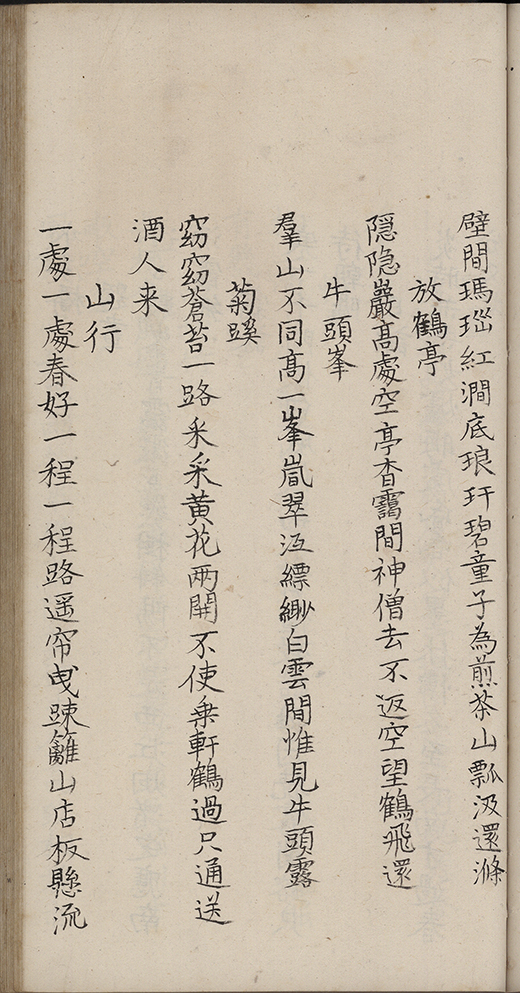 壁間瑪瑙紅澗底琅玕碧童子為煎茶山瓢汲還滌
放鶴亭
隠隐巖髙處空亭杳靄間神僧去不返空望鶴飛還
牛頭峯
羣山不同髙一峯嵐翠沍縹緲白雲間惟見牛頭露
菊蹊
窈窈蒼苔一路采采黄花两開不使乗軒鶴過只通送
酒人来
山行
一處一處春好一程一程路遥帘曳踈籬山店板懸流